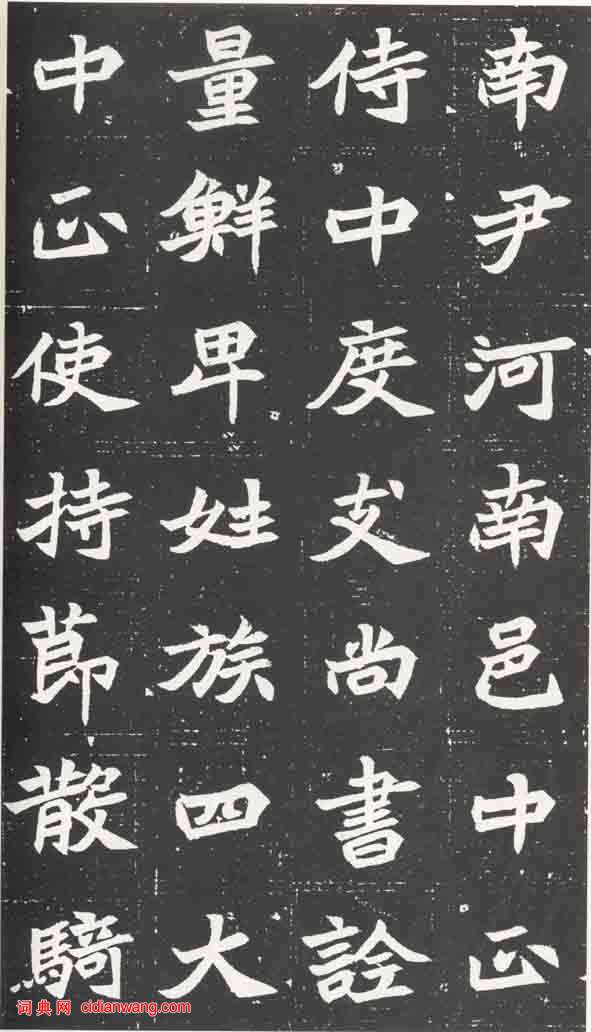 南尹河南邑中正
侍中度支尚書詮
量鮮卑姓族四大
中正使持節散騎
词典网 cidianwang.com